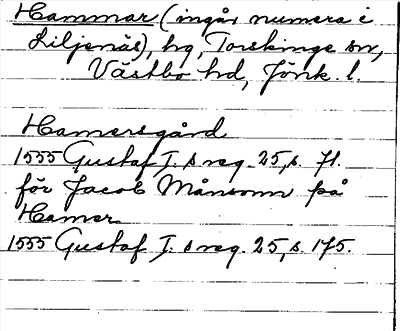 Hammar (ingår numera i
Liljenäs), hg, Torskinge sn,
Västbo hd, Jönk. l.
Hamersgård
1555 Gustaf I. s reg. 25, s. 71.
för Jacob Månsonn på
Hamer
1555 Gustaf I. s reg. 25, s. 175.